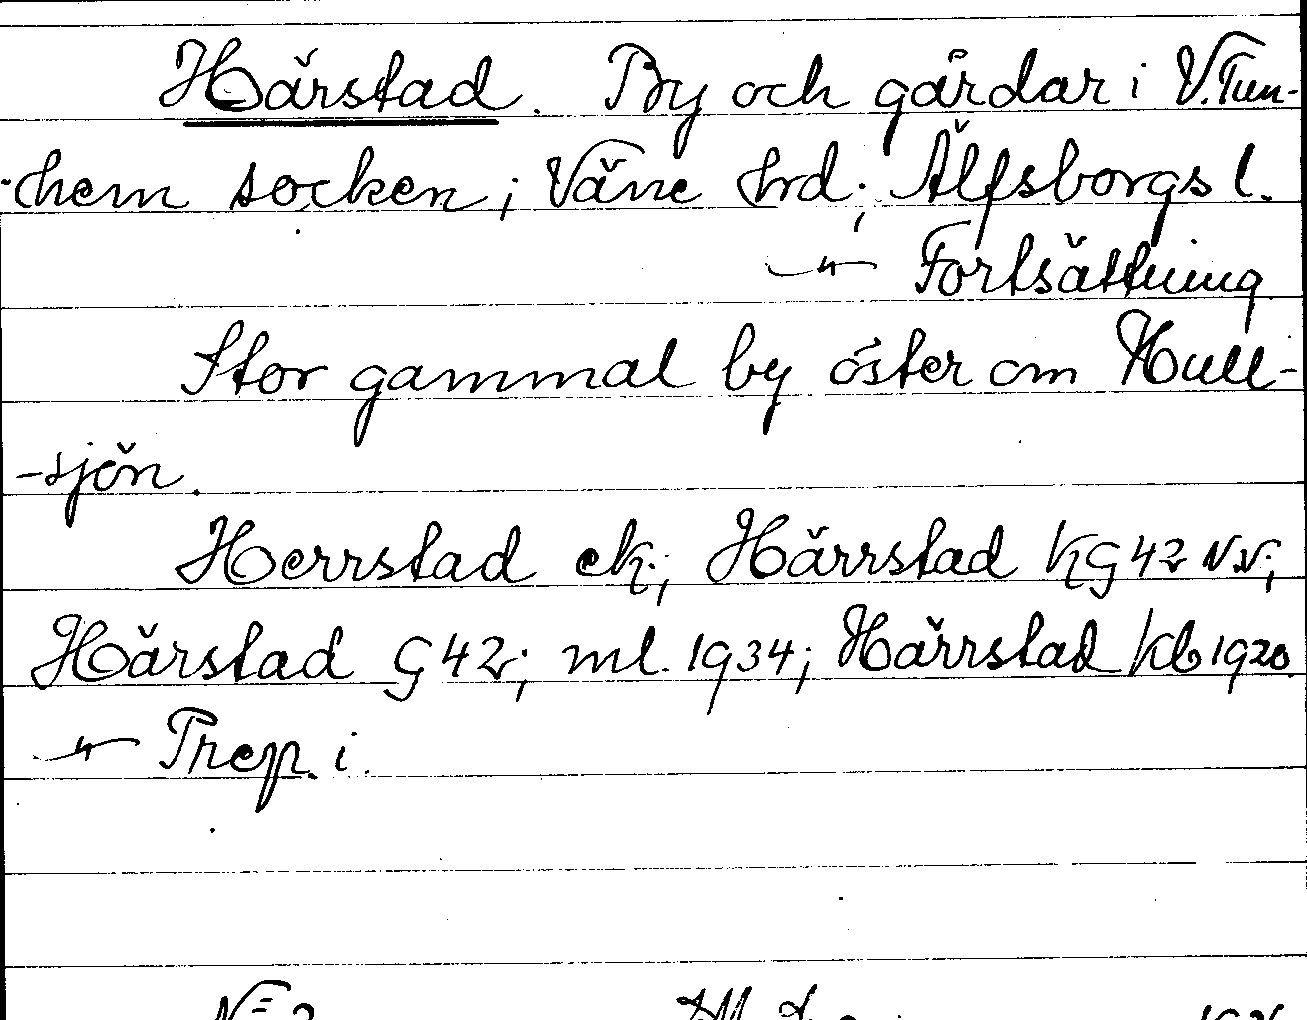 Härstad. By och gårdar i V. Tun-
-hem socken; Väne hrd; Älfsborgs l.
Fortsättning
Stor gammal by öster om Hull-
-sjön.
Herrstad ek; Härrstad KG 42 NV;
Härstad G 42; ml. 1934; Härrstad Kb 1920.
Prep. i.